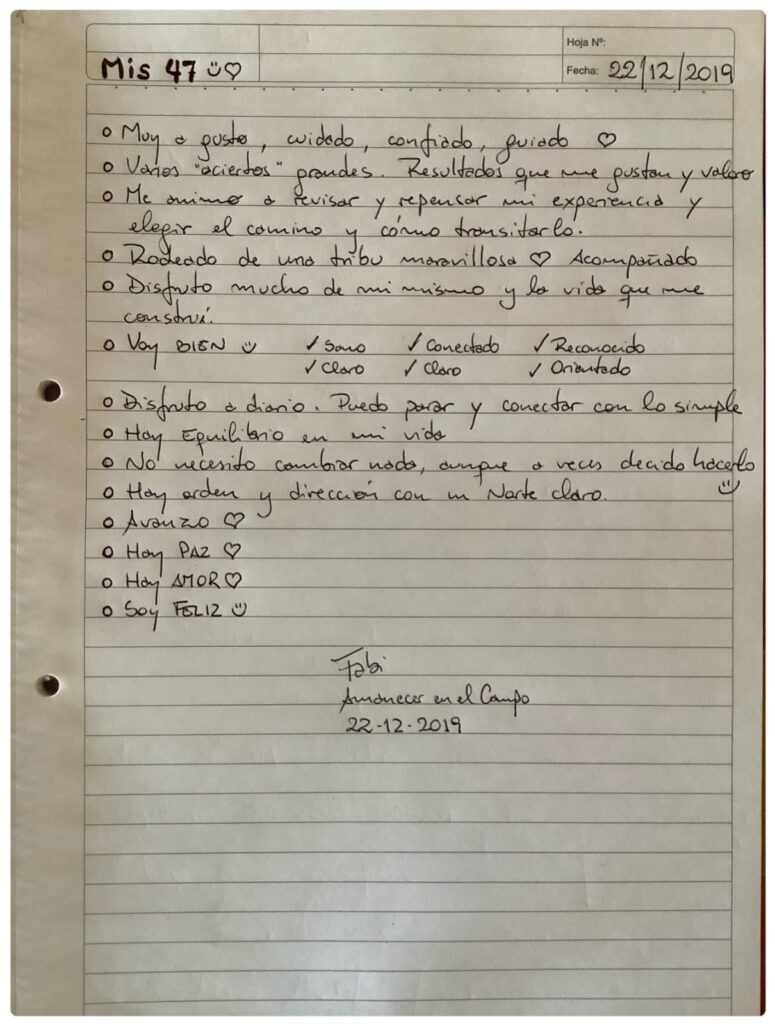 Hoja Nº:
Mis 47 ☺♡ Fecha: 22/12/2019
o Muy a gusto, cuidado, confiado, guiado ♡
o Varios "aciertos" grandes. Resultados que me gustan y valoro
o Me animo a revisar y repensar mi experiencia y
elegir el camino y cómo transitarlo.
o Rodeado de una tribu maravillosa ♡ Acompañado
o Disfruto mucho de mi mismo y la vida que me
construí.
o Voy BIEN ☺ ✓ Sano ✓ Conectado ✓ Reconocido
✓ Claro ✓ Claro ✓ Orientado
o Disfruto a diario. Puedo parar y conectar con lo simple
o Hay Equilibrio en mi vida
o No necesito cambiar nada, aunque a veces decido hacerlo ☺
o Hay orden y dirección con un Norte claro.
o Avanzo ♡
o Hay PAZ ♡
o Hay AMOR ♡
o Soy FELIZ ☺
Fabi
Amanecer en el Campo
22-12-2019